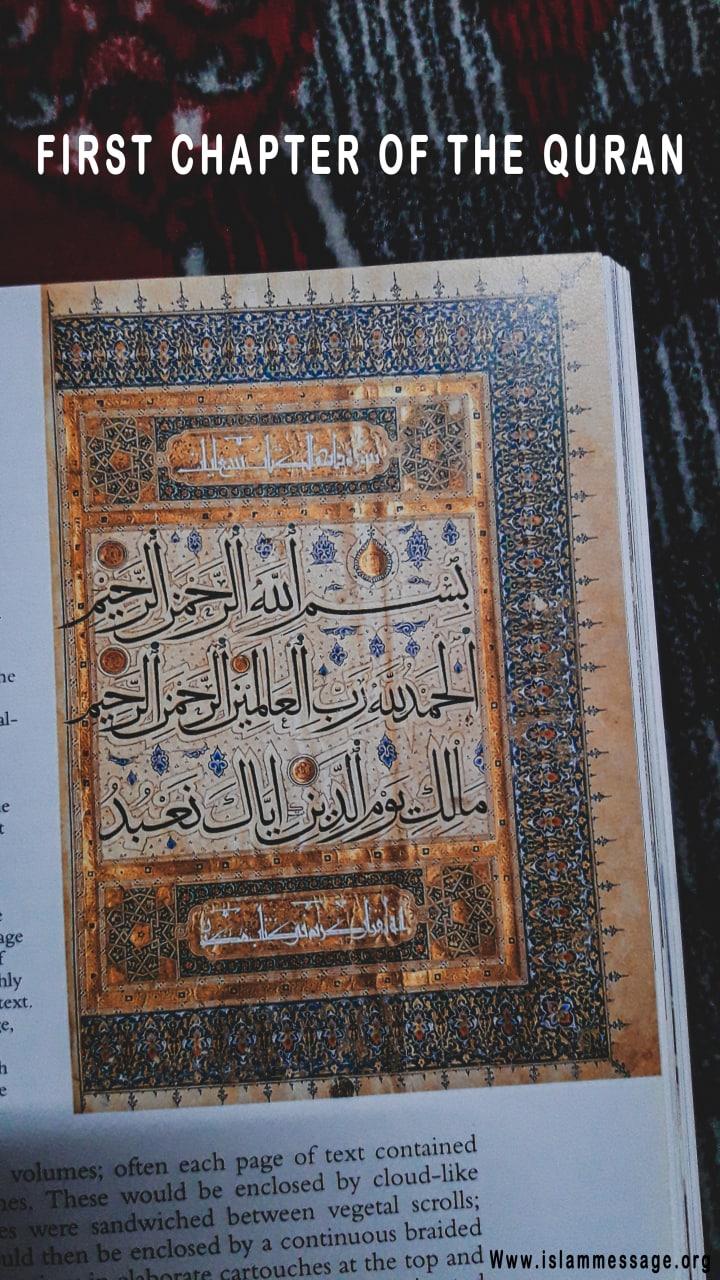 FIRST CHAPTER OF THE QURAN
بِسْمِ اللهِ الرَّحْمٰنِ الرَّحِيْمِ
الْحَمْدُ لِلّٰهِ رَبِّ الْعَالَمِيْنَ الرَّحْمٰنِ الرَّحِيْمِ
مَالِكِ يَوْمِ الدِّيْنِ اِيَّاكَ نَعْبُدُ
he
al-
e
t
e
age
f
hly
text.
e,
h
e
volumes; often each page of text contained
nes. These would be enclosed by cloud-like
es were sandwiched between vegetal scrolls;
uld then be enclosed by a continuous braided
elaborate cartouches at the top and
Www.islammessage.org